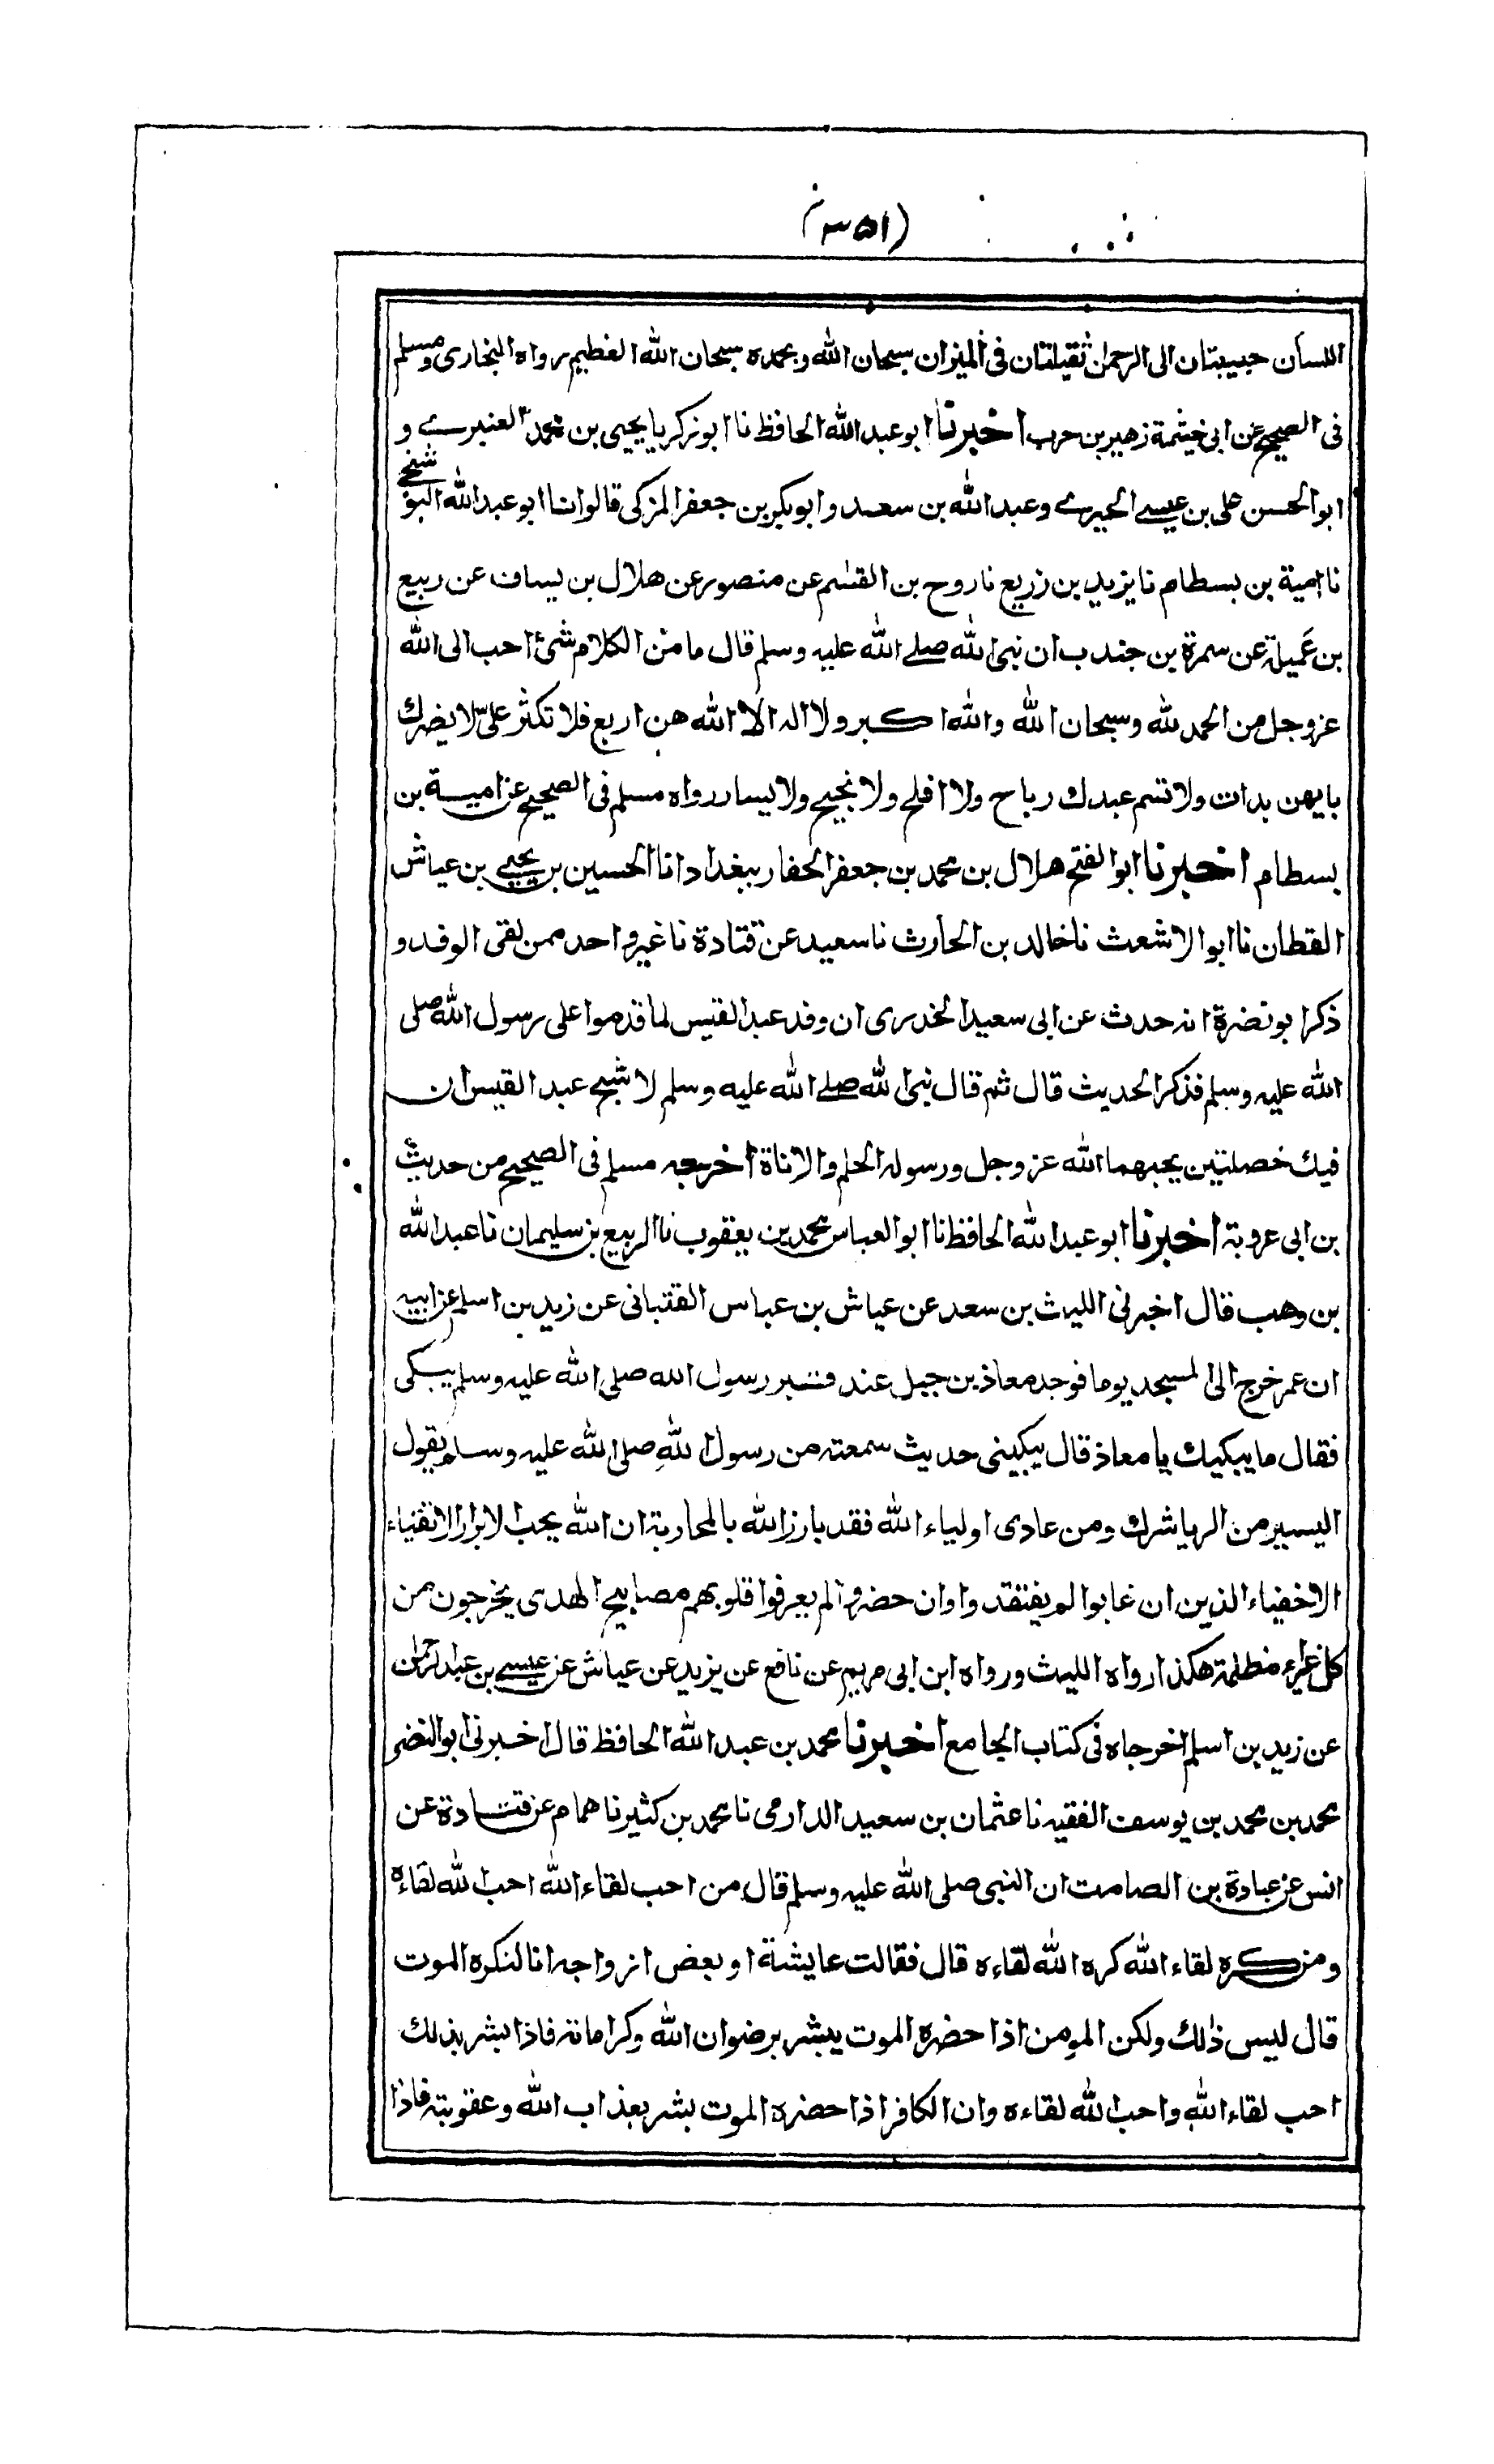 (۳۵۱)
اللسان حبيبتان الى الرحمن ثقيلتان فى الميزان سبحان الله وبحمده سبحان الله العظيم رواه البخارى ومسلم
فى الصحيح عن ابى خيثمة زهير بن حرب اخبرنا ابو عبد الله الحافظ نا ابو زكريا يحيى بن محمد العنبرے و
ابو الحسن على بن عيسے الحيرے وعبد الله بن سعد وابو بكر بن جعفر المزكى قالوا نا ابو عبد الله البوشنجے
نا امية بن بسطام نا يزيد بن زريع نا روح بن القسم عن منصور عن هلال بن يساف عن ربيع
بن عَميلة عن سمرة بن جندب ان نبى الله صلے الله عليه وسلم قال ما من الكلام شئ احب الى الله
عز وجل من الحمد لله وسبحان الله والله اكبر ولا اله الا الله هن اربع فلا تكثر علىّ لا يضرك
بايهن بدات ولا تسم عبدك رباح ولا افلح ولا نجيح ولا يسار رواه مسلم فى الصحيح عن امية بن
بسطام اخبرنا ابو الفتح هلال بن محمد بن جعفر الحفار ببغداد انا الحسين بن يحيے بن عياش
القطان نا ابو الاشعث نا خالد بن الحارث نا سعيد عن قتادة نا غير واحد ممن لقى الوفد و
ذكر ابو نضرة انه حدث عن ابى سعيد الخدرى ان وفد عبد القيس لما قدموا على رسول الله صلى
الله عليه وسلم فذكر الحديث قال ثم قال نبى الله صلے الله عليه وسلم لاشج عبد القيس ان
فيك خصلتين يحبهما الله عز وجل ورسوله الحلم والاناة اخرجه مسلم فى الصحيح من حديث
بن ابى عروبة اخبرنا ابو عبد الله الحافظ نا ابو العباس محمد بن يعقوب نا الربيع بن سليمان نا عبد الله
بن وهب قال اخبرنى الليث بن سعد عن عياش بن عباس القتبانى عن زيد بن اسلم عن ابيه
ان عمر خرج الى المسجد يوما فوجد معاذ بن جبل عند قبر رسول الله صلى الله عليه وسلم يبكى
فقال ما يبكيك يا معاذ قال يبكينى حديث سمعته من رسول اللهِ صلى الله عليه وسلم يقول
اليسير من الريا شرك ومن عادى اولياء الله فقد بارز الله بالمحاربة ان الله يحب الابرار الاتقياء
الاخفياء الذين ان غابوا لم يفتقدوا وان حضروا لم يعرفوا قلوبهم مصابيح الهدى يخرجون من
كل غبراء مظلمة هكذا رواه الليث ورواه ابن ابى مريم عن نافع عن يزيد عن عياش عن عيسے بن عبد الرحمن
عن زيد بن اسلم اخرجاه فى كتاب الجامع اخبرنا محمد بن عبد الله الحافظ قال اخبرنى ابو النضر
محمد بن محمد بن يوسف الفقيه نا عثمان بن سعيد الدارمى نا محمد بن كثير نا همام عن قتادة عن
انس عن عبادة بن الصامت ان النبى صلى الله عليه وسلم قال من احب لقاء الله احب الله لقاءه
ومن كره لقاء الله كره الله لقاءه قال فقالت عايشة او بعض ازواجه انا لنكره الموت
قال ليس ذلك ولكن المومن اذا حضره الموت يبشر برضوان الله وكرامانه فاذا بشر بذلك
احب لقاء الله واحب الله لقاءه وان الكافر اذا حضره الموت بشر بعذاب الله وعقوبته فاذا